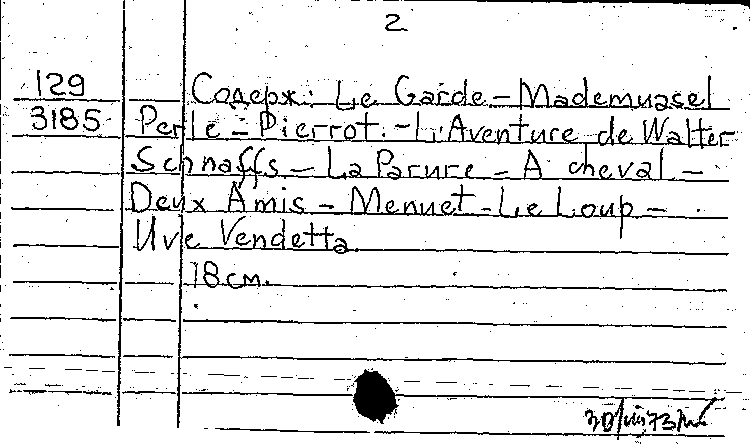 2
129 Содерж: Le Garde - Mademuasel
3185 Perle - Pierrot. - L'Aventure de Walter
Schnaffs - La Parure - A cheval -
Deux Amis - Menuet - Le Loup -
Uve Vendetta
18 см.